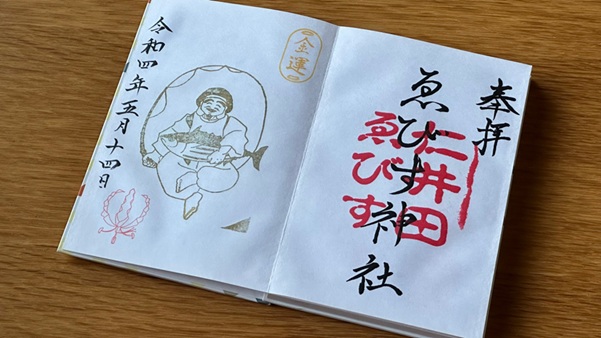 奉拝
ゑびす神社
仁井田
ゑびす
金運
令和四年五月十四日